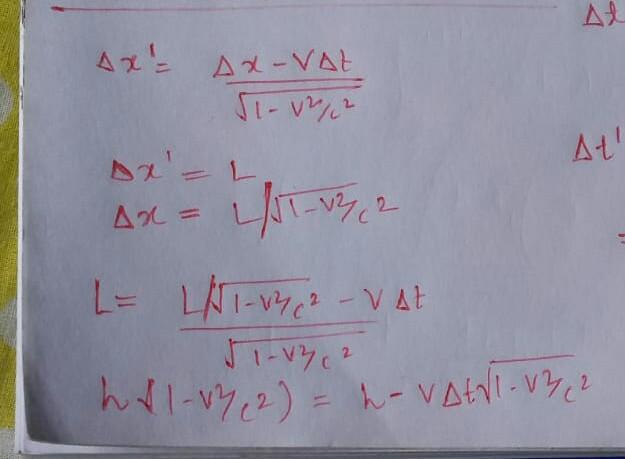 Δt
Δx' = Δx - VΔt / √1 - V²/c²
Δt'
Δx' = L
Δx = L/√1-V²/c²
=
L = L/√1-V²/c² - VΔt / √1-V²/c²
L (1-V²/c²) = L - VΔt√1-V²/c²